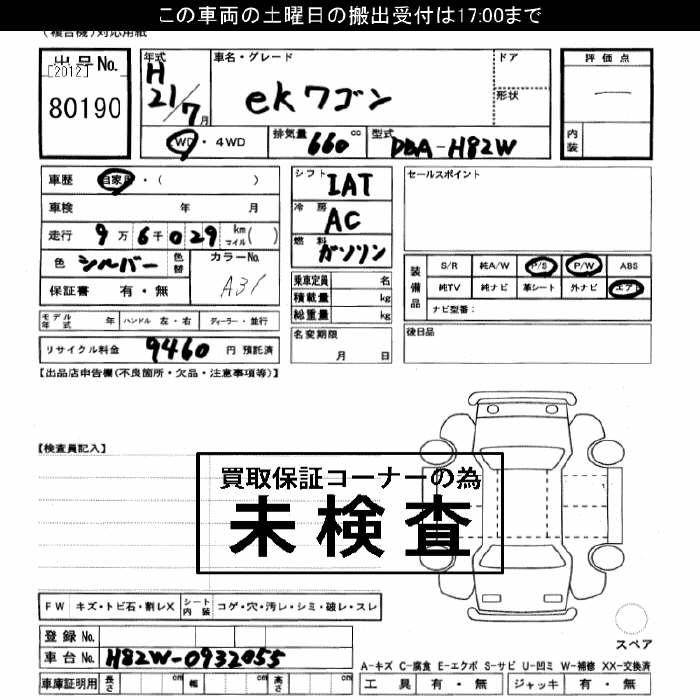 この車両の土曜日の搬出受付は17:00まで
(複合機)対応用紙
出品No.
[2012]
80190
年式
H
21/7月
車名・グレード
ekワゴン
ドア
形状
評価点
―
内装
2WD・4WD
排気量 660 cc
型式 DBA-H82W
車歴 自家用・( )
車検 年 月
走行 9万6千029 km マイル( )
色 シルバー 色替
カラーNo.
A31
保証書 有・無
シフト IAT
冷房 AC
燃料 ガソリン
乗車定員 名
積載量 kg
総重量 kg
セールスポイント
装備品
S/R 純A/W P/S P/W ABS
純TV 純ナビ 革シート 外ナビ エアB
ナビ型番:
モデル年式 年 ハンドル 左・右 ディーラー・並行
リサイクル料金 9460 円 預託済
名変期限
月 日
後日品
【出品店申告欄(不良箇所・欠品・注意事項等)】
【検査員記入】
買取保証コーナーの為
未検査
FW キズ・トビ石・割レX シート内装 コゲ・穴・汚レ・シミ・破レ・スレ
登録No.
車台No. H82W-0932055
車庫証明用 長さ cm 幅 cm 高さ cm
スペア
A-キズ C-腐食 E-エクボ S-サビ U-凹ミ W-補修 XX-交換済
工具 有・無 ジャッキ 有・無